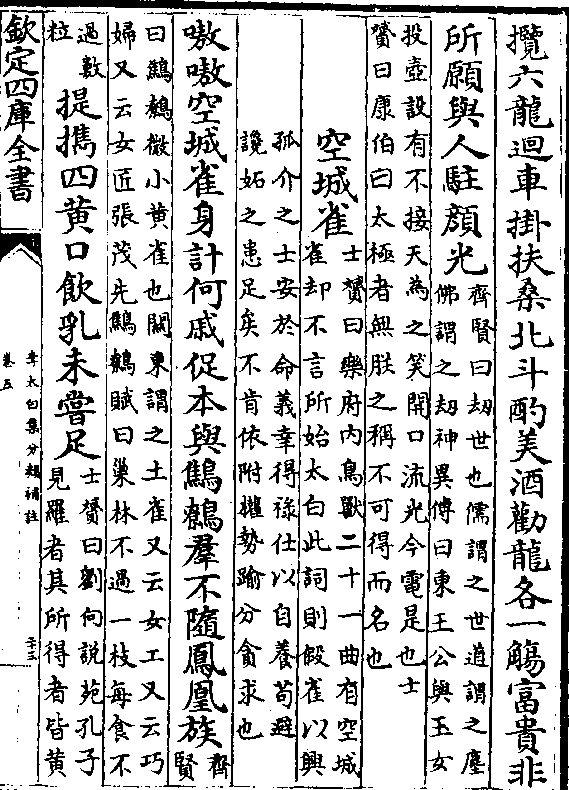 攬六龍迴車掛扶桑北斗酌美酒勸龍各一觴富貴非
所願與人駐顔光
齊賢曰刼世也儒謂之世道謂之塵
佛謂之刼神異傳曰東王公與玉女
投壺設有不接天為之笑開口流光今電是也士
贇曰康伯曰太極者無之稱不可得而名也
空城雀
士贇曰樂府内鳥獸二十一曲有空城
雀却不言所始太白此詞則假雀以興
孤介之士安於命義幸得祿仕以自養苟避
讒妬之患足矣不肯依附權勢踰分貪求也
嗷嗷空城雀身計何戚促本與鷦鷯羣不隨鳳凰族
齊
賢
曰鷦鷯微小黄雀也關東謂之土雀又云女工又云巧
婦又云女匠張茂先鷦鷯賦曰巢林不過一枝每食不
過數
粒
提攜四黄口飲乳未嘗足
士贇曰劉向說苑孔子
見羅者其所得者皆黄
欽定四庫全書
李太白集分類補註
卷五
二十三